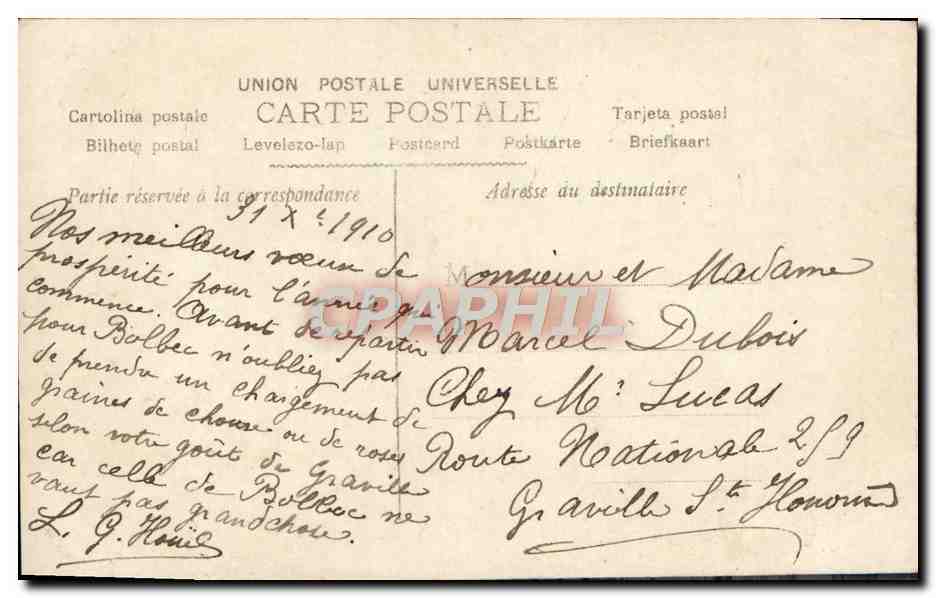 UNION POSTALE UNIVERSELLE
CARTE POSTALE
Cartolina postale
Tarjeta postal
Bilhete postal
Levelezo-lap
Postcard
Postkarte
Briefkaart
Partie réservée à la correspondance
31 Xt 1910
Nos meilleurs vœux de
prospérité pour l'année qui
commence. Avant de repartir
pour Bolbec n'oubliez pas
de prendre un chargement de
graines de choux ou de roses
selon votre goût de Graville
car celle de Bolbec ne
vaut pas grandchose.
L. G. Houël
Adresse du destinataire
Monsieur et Madame
Marcel Dubois
Chez Mr Lucas
Route Nationale 259
Graville Ste Honorine
CPAPHIL